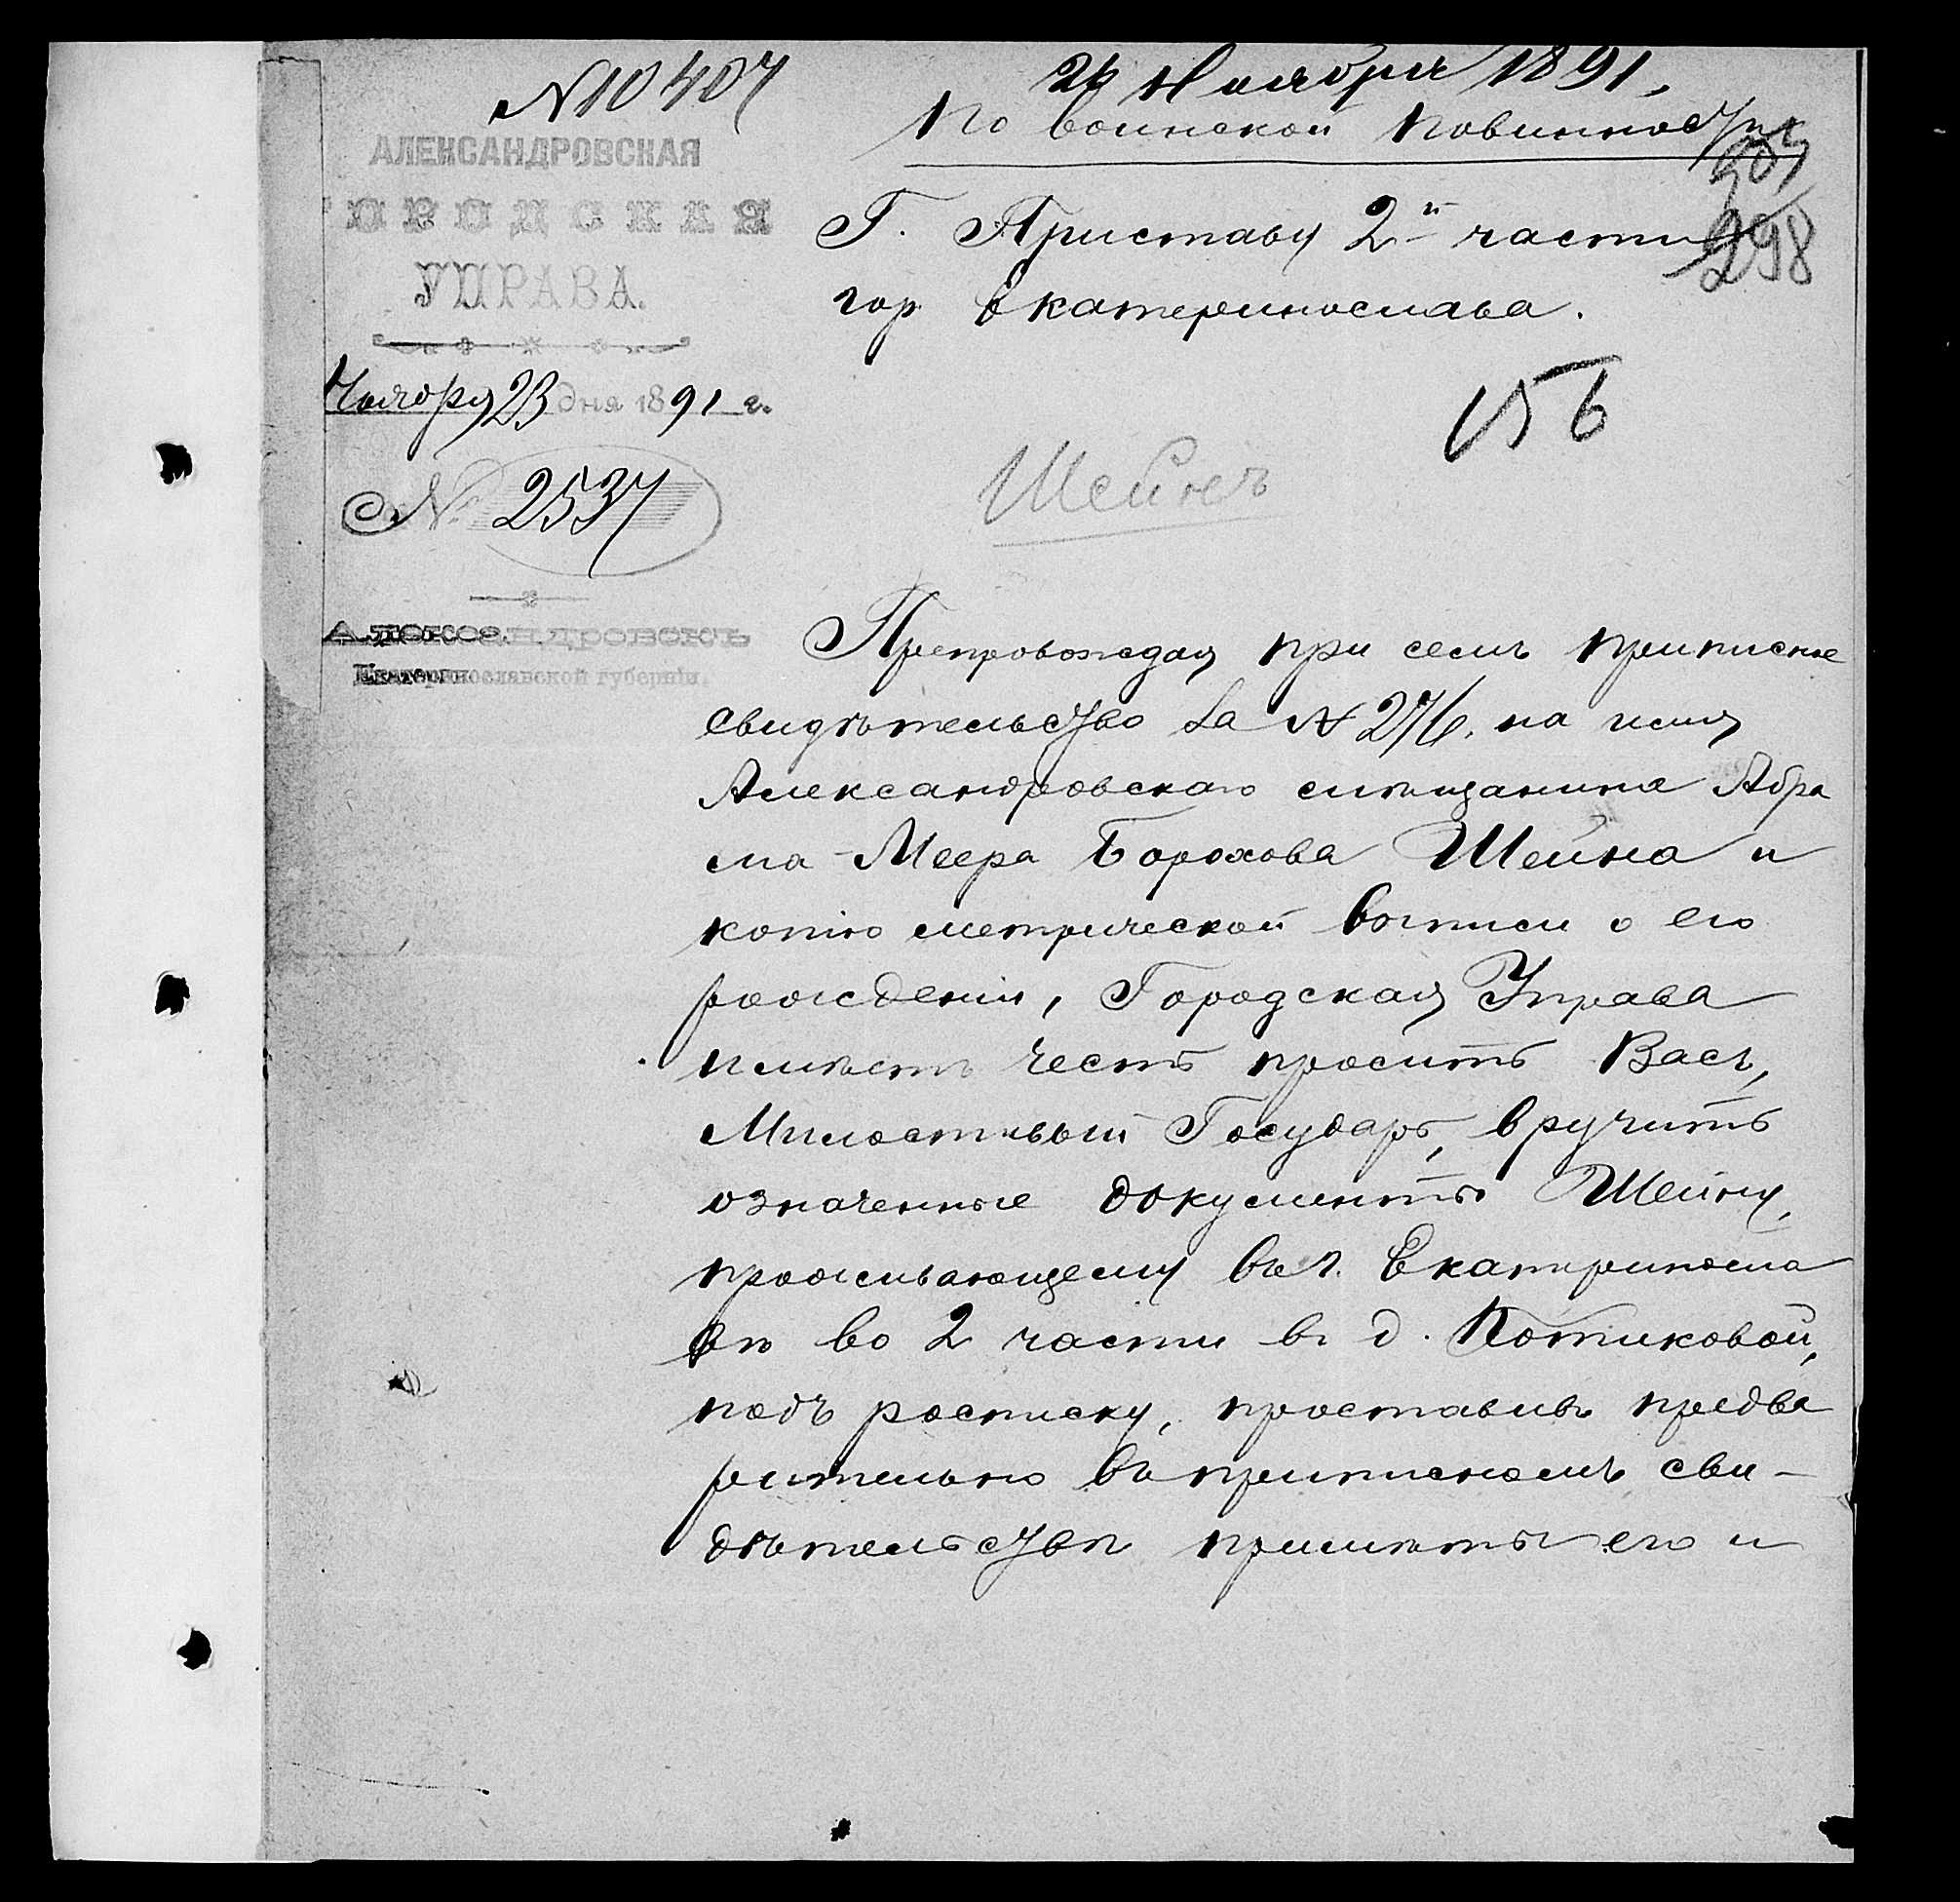 № 10407
26 Ноября 1891,
По воинской повинности
АЛЕКСАНДРОВСКАЯ
ГОРОДСКАЯ
УПРАВА.
298
Г. Приставу 2й части
гор Екатеринослава.
Ноября 23 дня 1891 г.
156
№ 2537
Шейнъ
АЛЕКСАНДРОВСКЪ
Екатеринославской губерніи.
Препровождая при семъ приписное
свидѣтельство за № 276, на имя
Александровскаго мѣщанина Абра
ма-Меера Борохова Шейна и
копію метрической выписи о его
рожденіи, Городская Управа
имѣетъ честь просить Васъ,
Милостивый Государь, вручить
означенные документы Шейну,
проживающему въ г. Екатериносла
вѣ во 2 части въ д. Котиковой,
подъ росписку, проставивъ предва
рительно въ приписномъ сви-
дѣтельствѣ примѣты его и